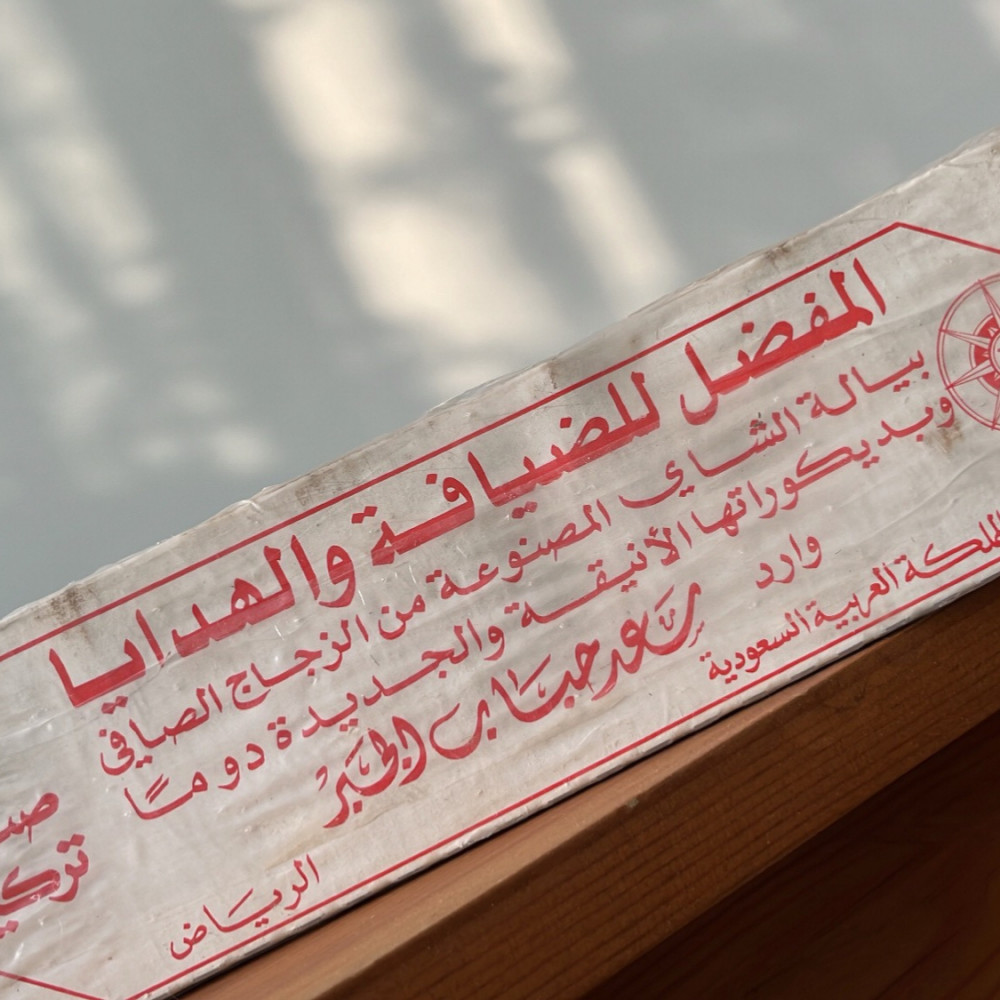 المفضل للضيافة والهدايا
بيالة الشاي المصنوعة من الزجاج الصافي
وبديكوراتها الأنيقة والجديدة دومًا
وارد
سعد حباب الجبر
العربية السعودية
الرياض